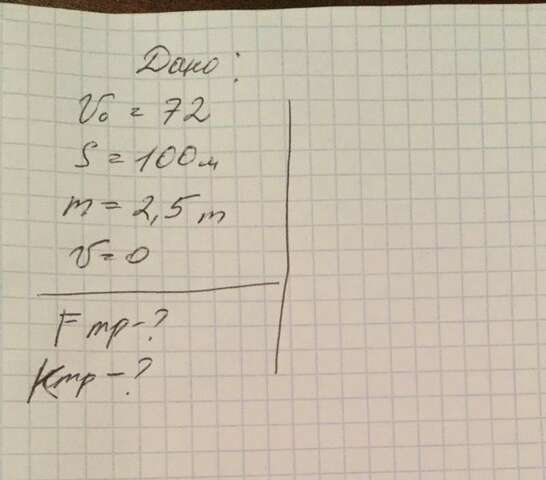 Дано:
V₀ = 72
S = 100м
m = 2,5 т
V = 0
Fтр - ?
Kтр - ?